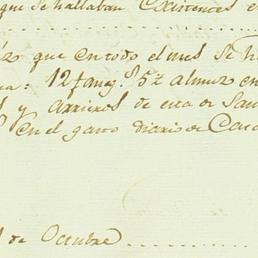 que se hallaban existentes e
zo que en todo el mes se h
a: 12 fanegs 5½ almuz en
s y arrieros de esta de San
en el gasto diario de Cas
l de Octubre